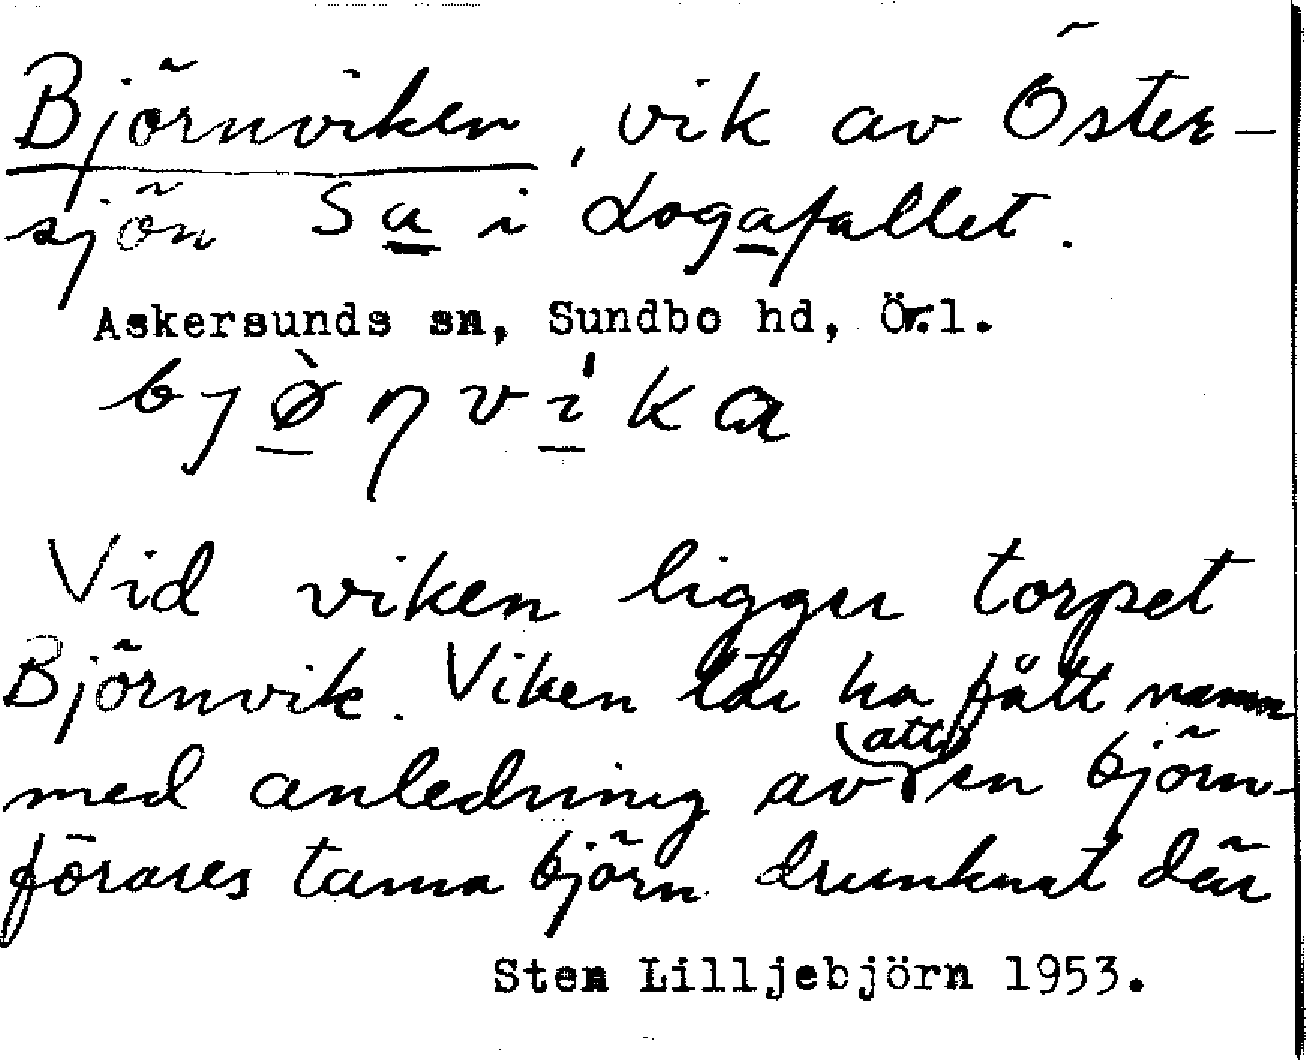 Björnviken, vik av Öster-
sjön Sa i Logafallet.
Askersunds sn, Sundbo hd, Ör.l.
bjø̀ηvíka
Vid viken ligger torpet
Björnvik. Viken lär ha fått namn
med anledning av (att) en björn-
förares tama björn drunknat där
Sten Lilljebjörn 1953.